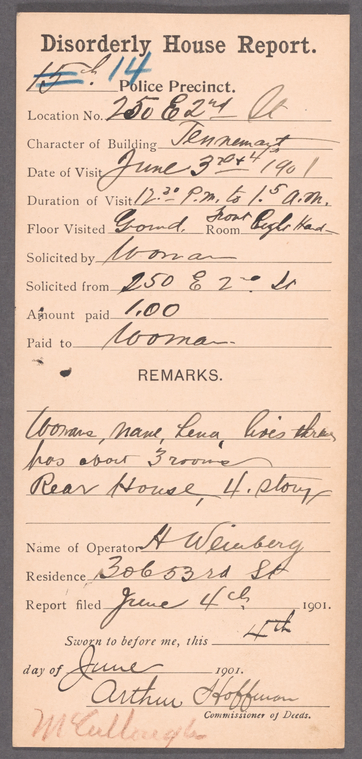 Disorderly House Report.
15th 14 Police Precinct.
Location No. 250 E 2nd St
Character of Building Tennemant
Date of Visit June 3rd & 4 1901
Duration of Visit 12.30 P.M. to 1.5 A.M.
Floor Visited Gound. Room front Right Hand
Solicited by Woman
Solicited from 250 E 2nd St
Amount paid 1.00
Paid to Woman
REMARKS.
Womans, name, Lena, lives there
has about 3 rooms
Rear House, 4. story
Name of Operator H Weinberg
Residence 306 53rd St
Report filed June 4th 1901.
Sworn to before me, this 4th
day of June 1901.
Arthur Hoffman
Commissioner of Deeds.
McCullough